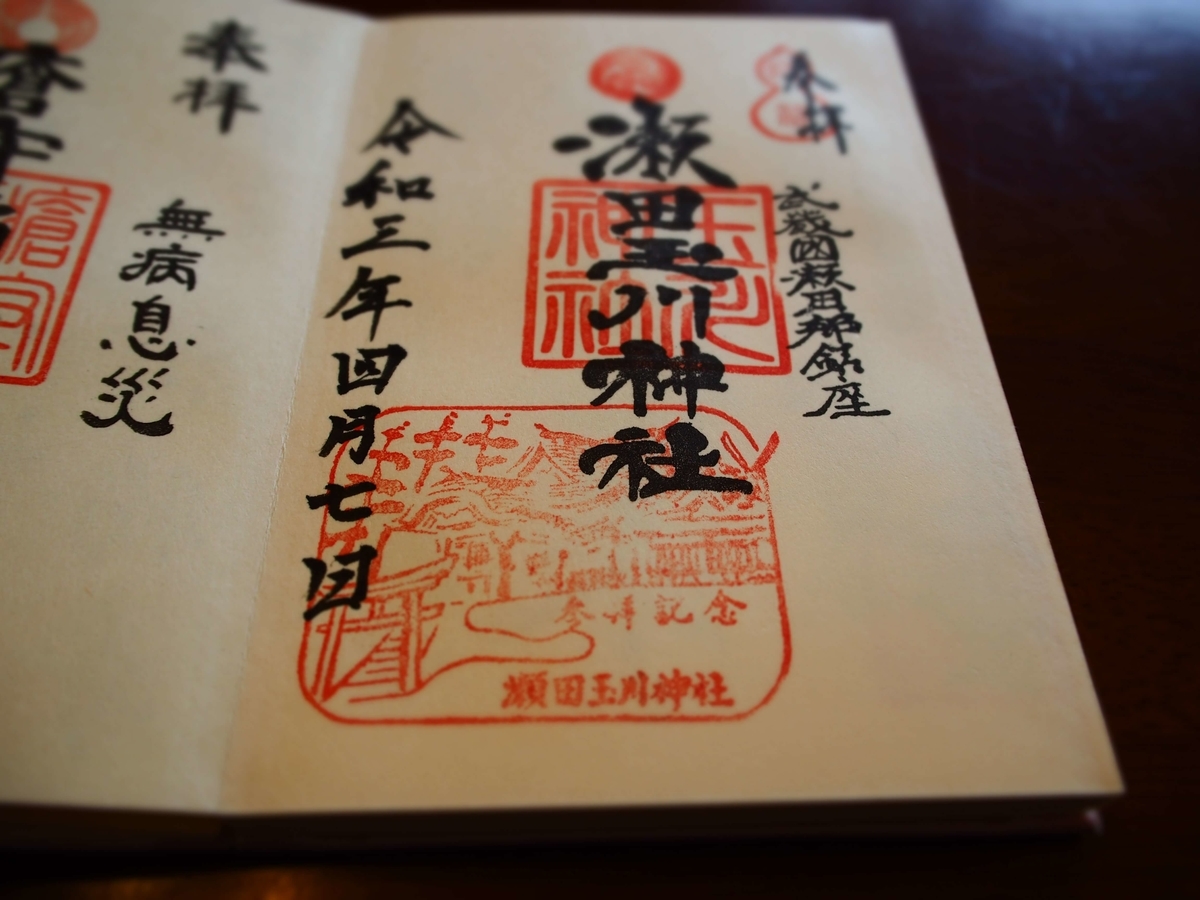 奉拝
武蔵國瀬田郷鎮座
瀬田玉川神社
玉川
神社
令和三年四月七日
参拝記念
瀬田玉川神社
奉拝
無病息災